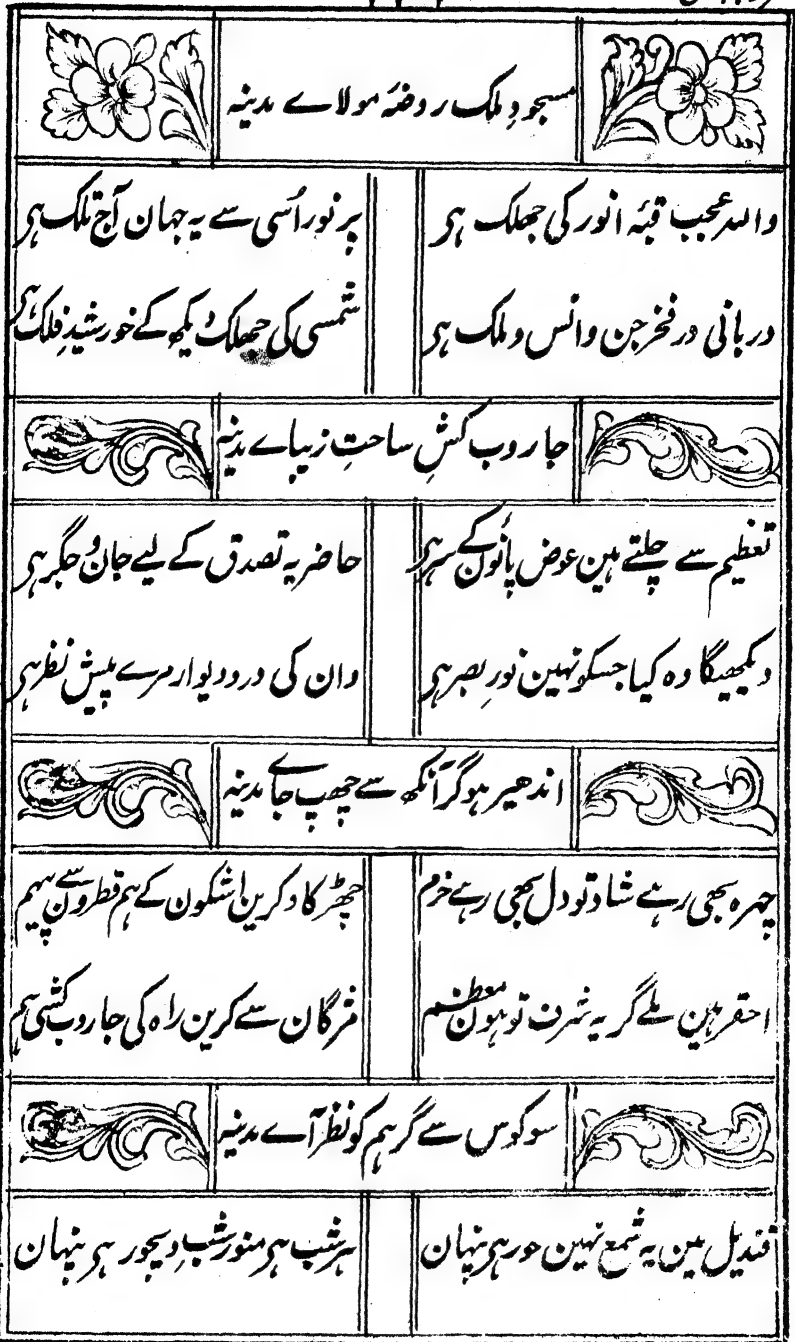 مسجودِ ملک روضۂ مولاے مدینہ
واللہ عجب قبۂ انور کی جھلک ہی پر نور اُسی سے یہ جہان آج تلک ہی
دربانی در فخر جن و انس و ملک ہی شمسی کی جھلک دیکھ کے خورشیدِ فلک ہی
جاروب کشِ ساحتِ زیباے مدینہ
تعظیم سے چلتے ہین عوض پانؤن کے سر ہی حاضر یہ تصدق کے لیے جان و جگر ہی
دیکھیگا وہ کیا جسکو نہین نورِ بصر ہی وان کی در و دیوار مرے پیش نظر ہی
اندھیر ہو گر آنکھ سے چھپ جاے مدینہ
چہرہ بھی رہے شاد تو دل بھی رہے خرم چھڑکاو کرین اشکون کے ہم قطرون سے پیہم
احقر ہین ملے گر یہ شرف تو ہون معظم مژگان سے کرین راہ کی جاروب کشی ہم
سو کوس سے گر ہم کو نظر آے مدینہ
قندیل مین یہ شمع نہین حور ہی پنہان ہر شب ہی منور شبِ دیجور ہی پنہان